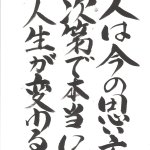 人は今の思い
次第で本当に
人生が変わる